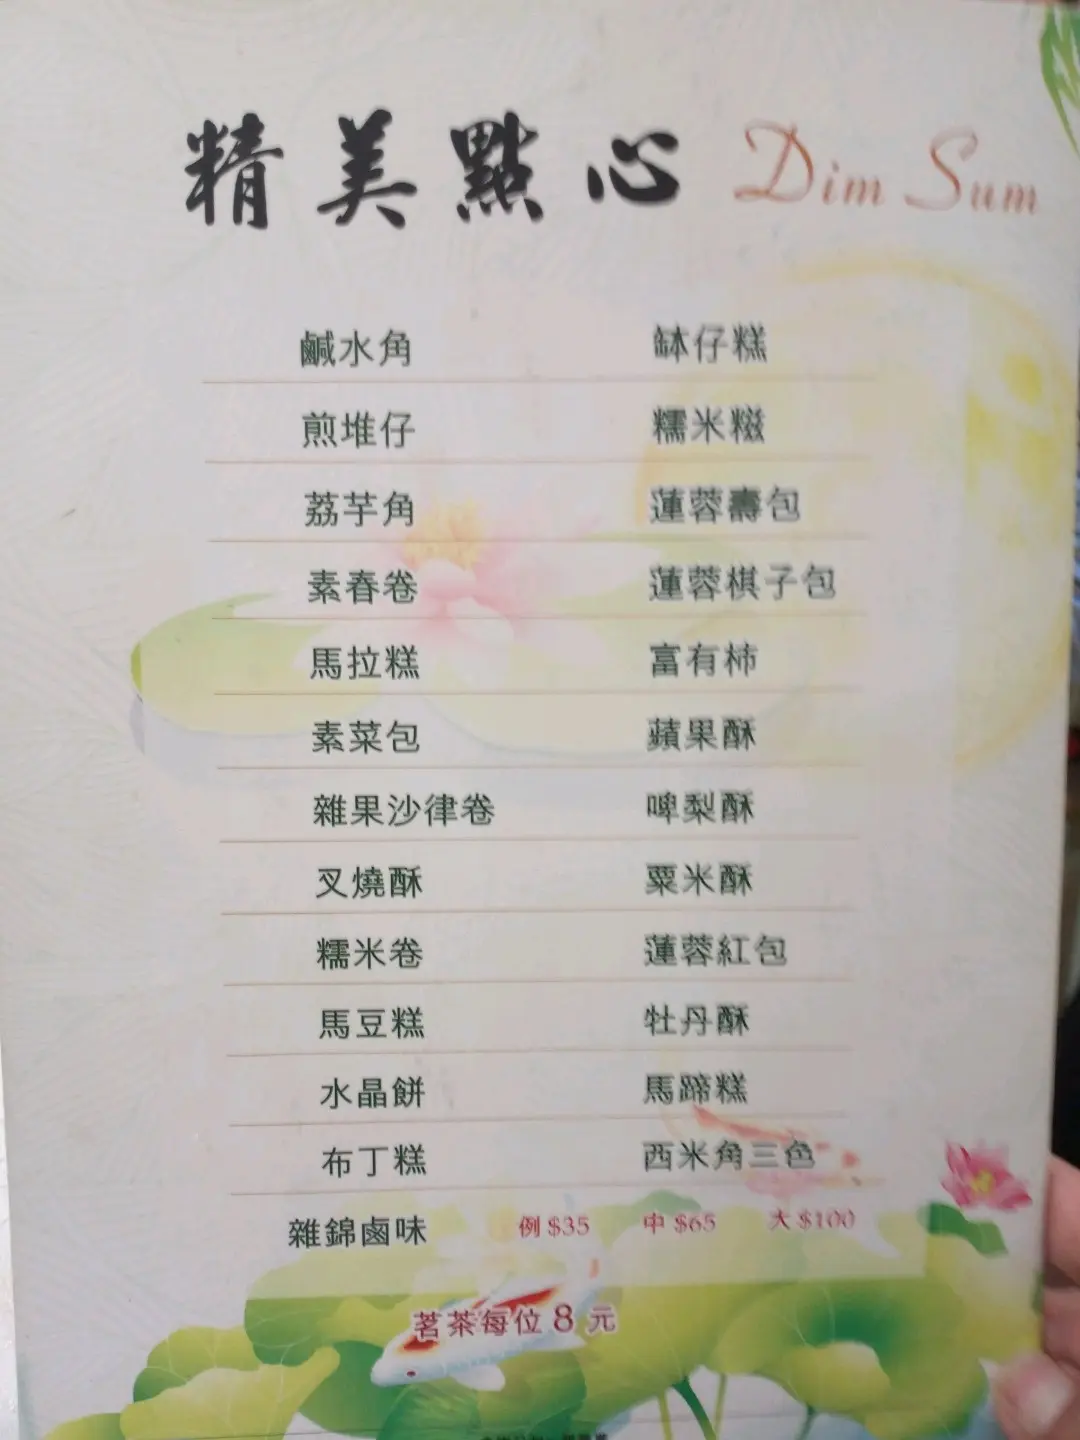 精美點心 Dim Sum
鹹水角 缽仔糕
煎堆仔 糯米糍
荔芋角 蓮蓉壽包
素春卷 蓮蓉棋子包
馬拉糕 富有柿
素菜包 蘋果酥
雜果沙律卷 啤梨酥
叉燒酥 粟米酥
糯米卷 蓮蓉紅包
馬豆糕 牡丹酥
水晶餅 馬蹄糕
布丁糕 西米角三色
雜錦鹵味 例 $35 中 $65 大 $100
茗茶每位 8 元